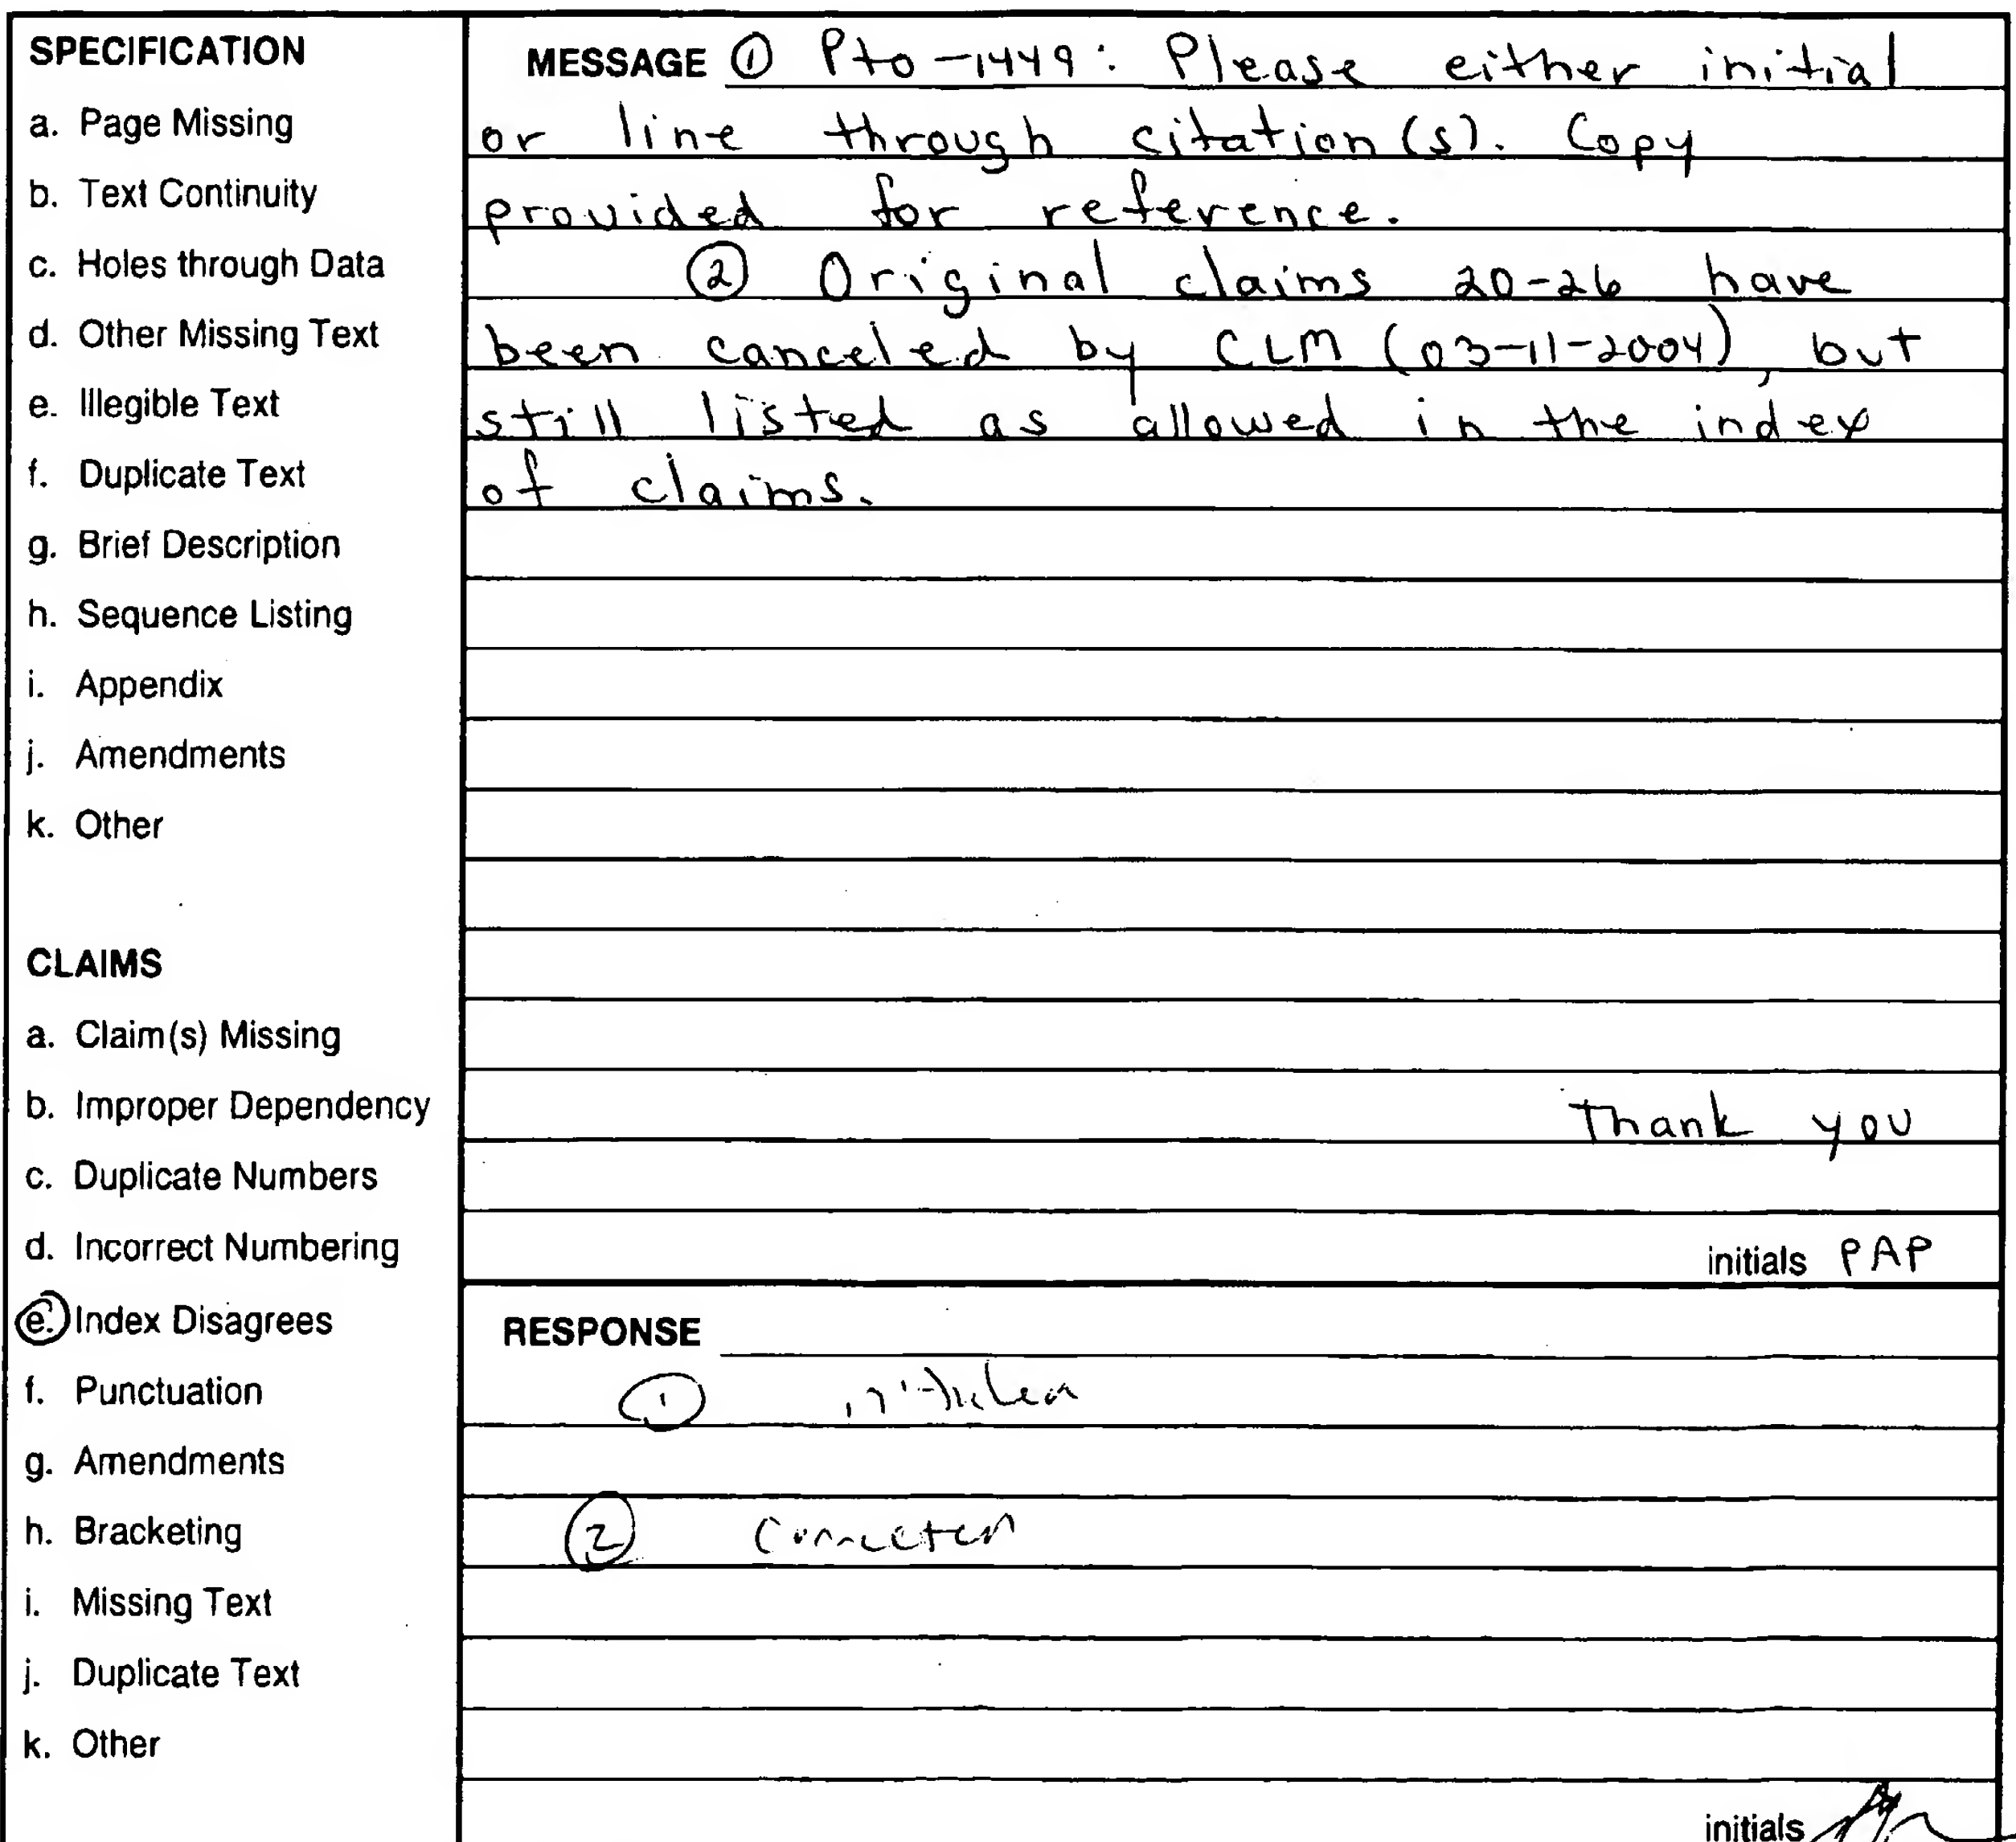 SPECIFICATION
a. Page Missing
b. Text Continuity
c. Holes through Data
d. Other Missing Text
e. Illegible Text
f. Duplicate Text
g. Brief Description
h. Sequence Listing
i. Appendix
j. Amendments
k. Other
CLAIMS
a. Claim(s) Missing
b. Improper Dependency
c. Duplicate Numbers
d. Incorrect Numbering
e. Index Disagrees
f. Punctuation
g. Amendments
h. Bracketing
i. Missing Text
j. Duplicate Text
k. Other
MESSAGE ① Pto-1449: Please either initial
or line through citation(s). Copy
provided for reference.
② Original claims 20-26 have
been canceled by CLM (03-11-2004), but
still listed as allowed in the index
of claims.
Thank you
initials PAP
RESPONSE
①
② Corrected
initials